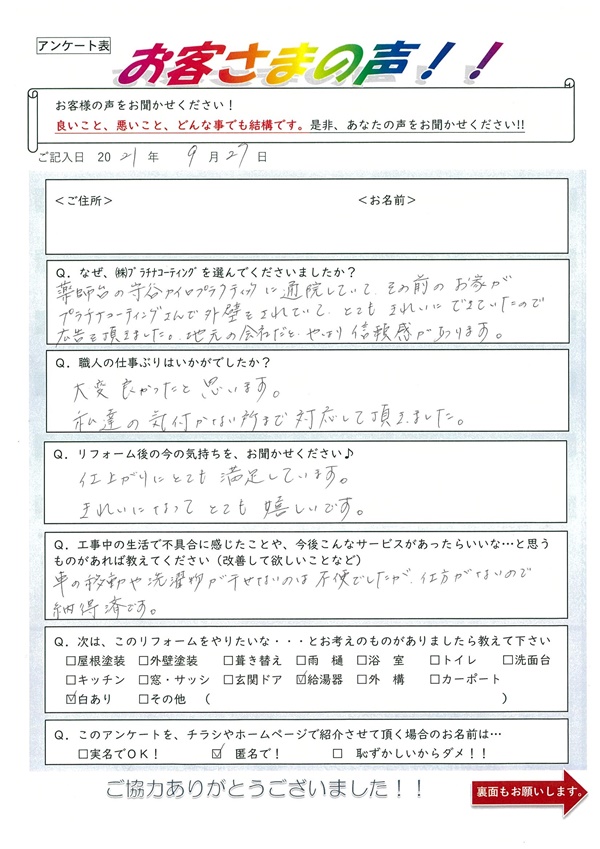 アンケート表
お客さまの声！！
お客様の声をお聞かせください！
良いこと、悪いこと、どんな事でも結構です。是非、あなたの声をお聞かせください!!
ご記入日 2021年 9月27日
＜ご住所＞ ＜お名前＞
Q．なぜ、㈱ﾌﾟﾗﾁﾅコーティングを選んでくださいましたか？
薬師台の守谷カイロプラクティックに通院していて、その前のお家が
プラチナコーティングさんで外壁をされていて、とてもきれいにできていたので
広告を頂きました。地元の会社だと、やはり信頼感があります。
Q．職人の仕事ぶりはいかがでしたか？
大変良かったと思います。
私達の気付かない所まで対応して頂きました。
Q．リフォーム後の今の気持ちを、お聞かせください♪
仕上がりにとても満足しています。
きれいになってとても嬉しいです。
Q．工事中の生活で不具合に感じたことや、今後こんなサービスがあったらいいな…と思う
ものがあれば教えてください（改善して欲しいことなど）
車の移動や洗濯物が干せないのは不便でしたが、仕方がないので
納得済です。
Q．次は、このリフォームをやりたいな・・・とお考えのものがありましたら教えて下さい
□屋根塗装 □外壁塗装 □葺き替え □雨樋 □浴室 □トイレ □洗面台
□キッチン □窓・サッシ □玄関ドア ☑給湯器 □外構 □カーポート
☑白あり □その他 （ ）
Q．このアンケートを、チラシやホームページで紹介させて頂く場合のお名前は…
□実名でOK！ ☑ 匿名で！ □ 恥ずかしいからダメ！！
ご協力ありがとうございました！！
裏面もお願いします。